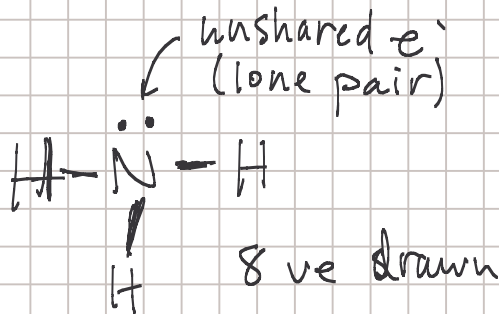 unshared e-
(lone pair)
H-N̈-H
H
8 ve drawn